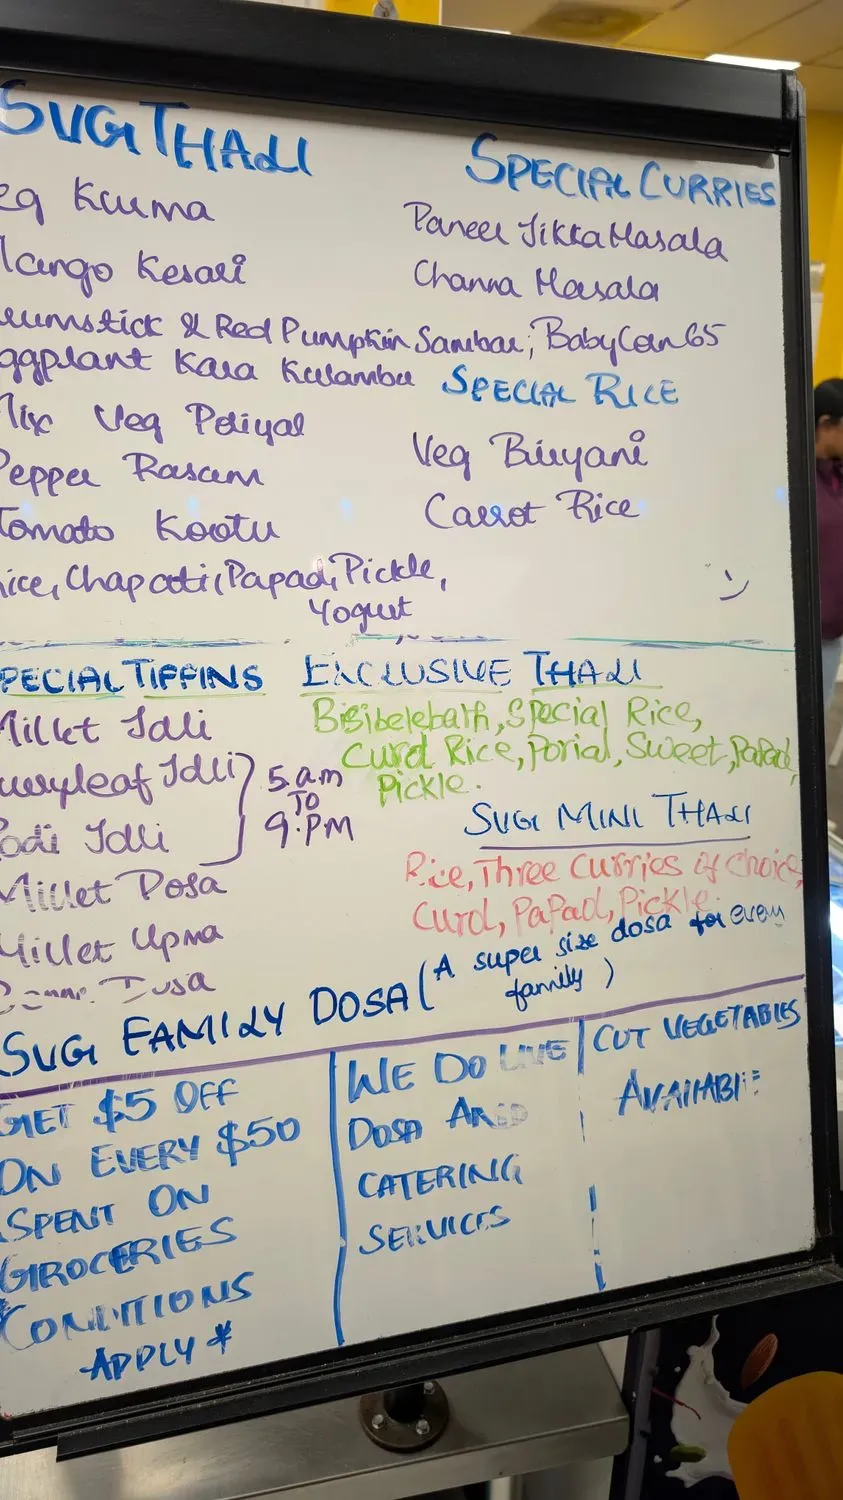 SVG THALI
Kurma
Kesari
& Red Pumpkin Sambar,
Kara Kulambu
Veg Poriyal
Pepper Rasam
Tomato Kootu
Chapati, Papad, Pickle,
Yogurt
SPECIAL CURRIES
Paneer Tikka Masala
Channa Masala
Baby Corn 65
SPECIAL RICE
Veg Biryani
Carrot Rice
TIFFINS
Millet Idli
Idli
Podi Idli
5.a.m
TO
9.PM
Millet Dosa
Millet Upma
EXCLUSIVE THALI
Bisibelebath, Special Rice,
Curd Rice, Porial, Sweet, Papad,
Pickle.
SVG MINI THALI
Rice, Three Curries of choice,
Curd, Papad, Pickle.
SVG FAMILY DOSA (A super size dosa for every
family)
GET $5 OFF
ON EVERY $50
SPENT ON
GROCERIES
CONDITIONS
APPLY *
WE DO LIVE
DOSA AND
CATERING
SERVICES
CUT VEGETABLES
AVAILABLE